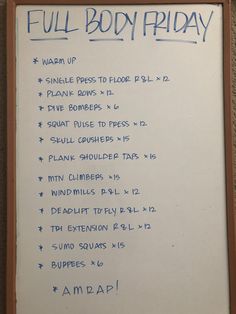 FULL BODY FRIDAY
* WARM UP
* SINGLE PRESS TO FLOOR R&L x12
* PLANK ROWS x12
* DIVE BOMBERS x6
* SQUAT PULSE TO PRESS x12
* SKULL CRUSHERS x15
* PLANK SHOULDER TAPS x15
* MTN CLIMBERS x15
* WINDMILLS R&L x12
* DEADLIFT TO FLY R&L x12
* TRI EXTENSION R&L x12
* SUMO SQUATS x15
* BURPEES x6
* AMRAP!